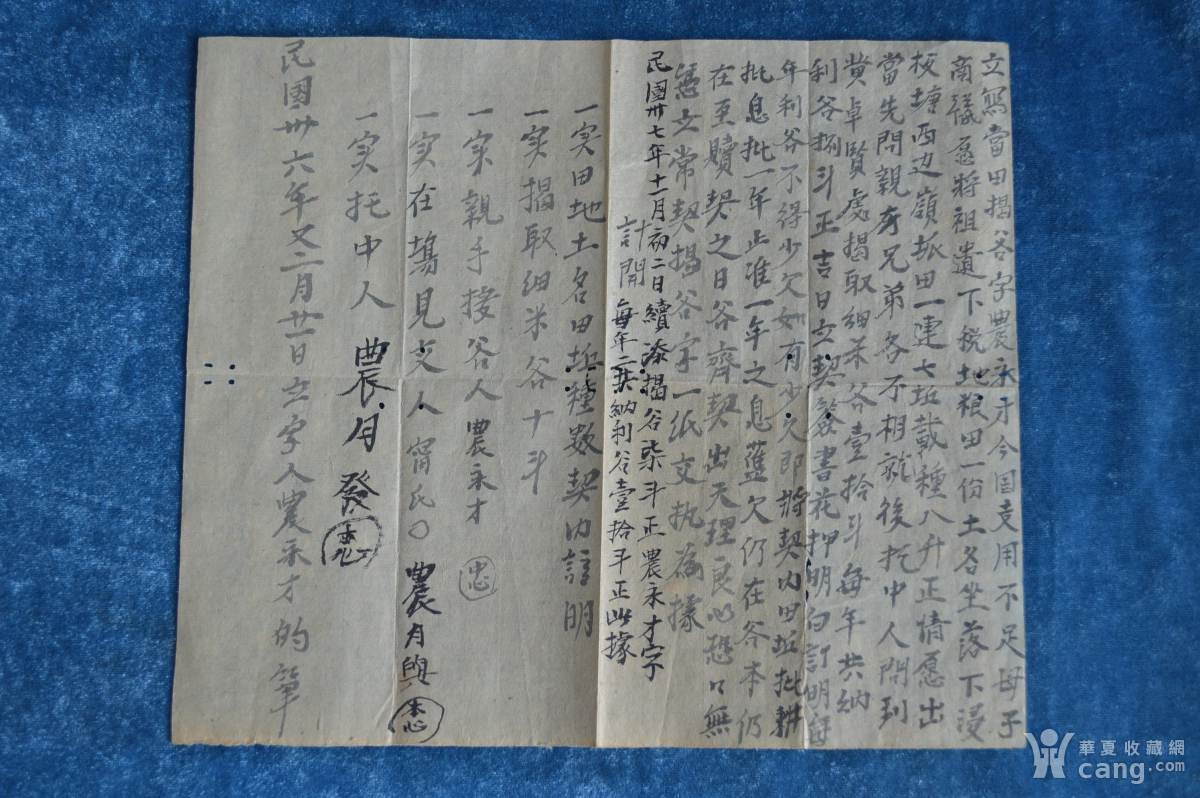 立寫當田揭谷字農永才今因支用不足母子
商議愿將祖遺下稅地粮田一份土名坐落下浸
梗塘西边嶺脈田一連七坵載種八升正情愿出
當先問親房兄弟各不相就後托中人問到
黄卓賢處揭取細米谷壹拾斗每年共納
利谷捌斗正吉日立契發書花押明白訂明每
年利谷不得少欠如有少欠即將契内田坵批耕
批息批一年止准一年之息藍欠仍在谷本仍
在至贖契之日谷齊契出天理良心恐口無
憑立常契揭谷字一紙交执為據
民國卅七年十一月初二日續添揭谷柒斗正農永才字
計開 每年二共納利谷壹拾斗正此據
一实田地土名田坵種數契内諄明
一实揭取細米谷十斗
一实親手接谷人 農永才 忠
一实在場見交人甯氏〇 農月興 本心
一实托中人 農月發 本心
民國卅六年又二月廿一日立字人農永才的筆
華夏收藏網
cang.com